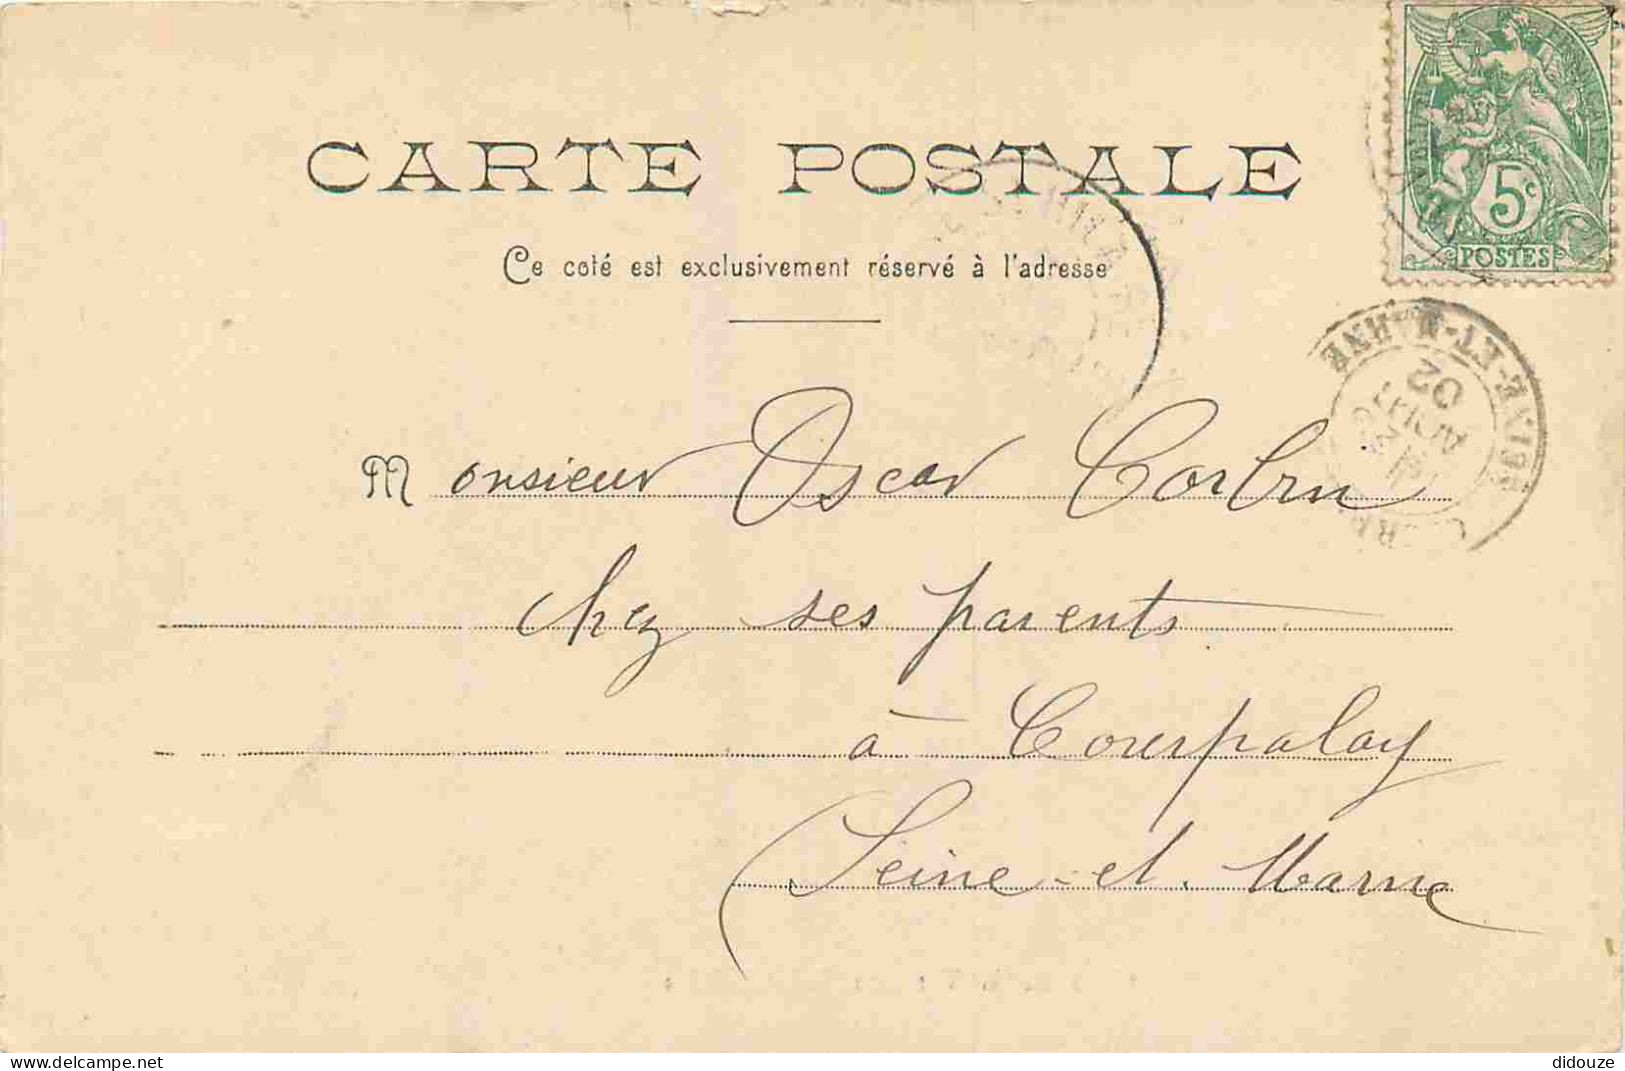 CARTE POSTALE
Ce coté est exclusivement réservé à l'adresse
5c
POSTES
SEINE-ET-MARNE
02
Monsieur Oscar Corbin
chez ses parents
à Courpalay
Seine-et-Marne
didouze